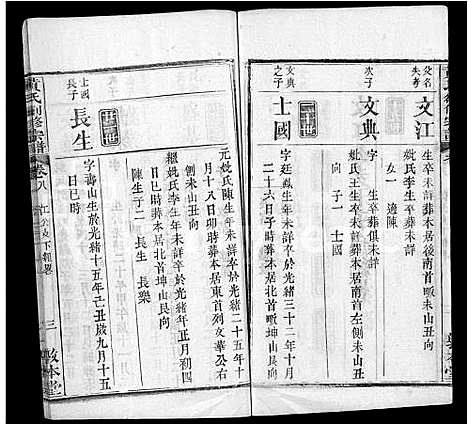 父名失考
文江
生卒未詳葬本居後南首畈未山丑向
妣氏李生卒葬未詳
女一 適陳
次子
文典
生卒葬俱未詳
妣氏王生卒未詳葬本居南首畈未山丑
向 子一 士國
文典之子
二十世
士國
字廷鳳生年未詳卒於光緒三十二年十月
二十六日子時葬本居北首畈坤山艮向
元妣氏陳生年未詳卒於光緒二十五年十
月十八日卯時葬本居東首列文華公右
側未山丑向
繼妣氏李生年未詳卒於光緒 年正月初四
日巳時葬本居北首坤山艮向
陳生子二 長生 長樂
士國長子
世
長生
字壽山生於光緒十五年己丑歲九月十五
日巳時
黃氏創修宗譜
卷八
下 三
敦本堂